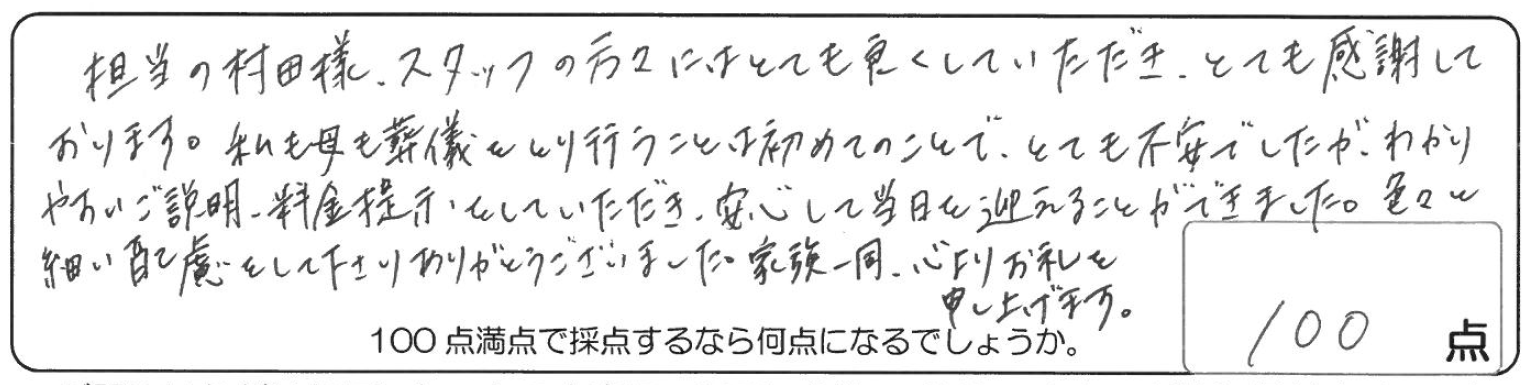 担当の村田様、スタッフの方々にはとても良くしていただき、とても感謝して
おります。私も母も葬儀をとり行うことは初めてのことで、とても不安でしたが、わかり
やすいご説明、料金提示をしていただき、安心して当日を迎えることができました。色々と
細い配慮をして下さりありがとうございました。家族一同、心よりお礼を
申し上げます。
100点満点で採点するなら何点になるでしょうか。
100 点